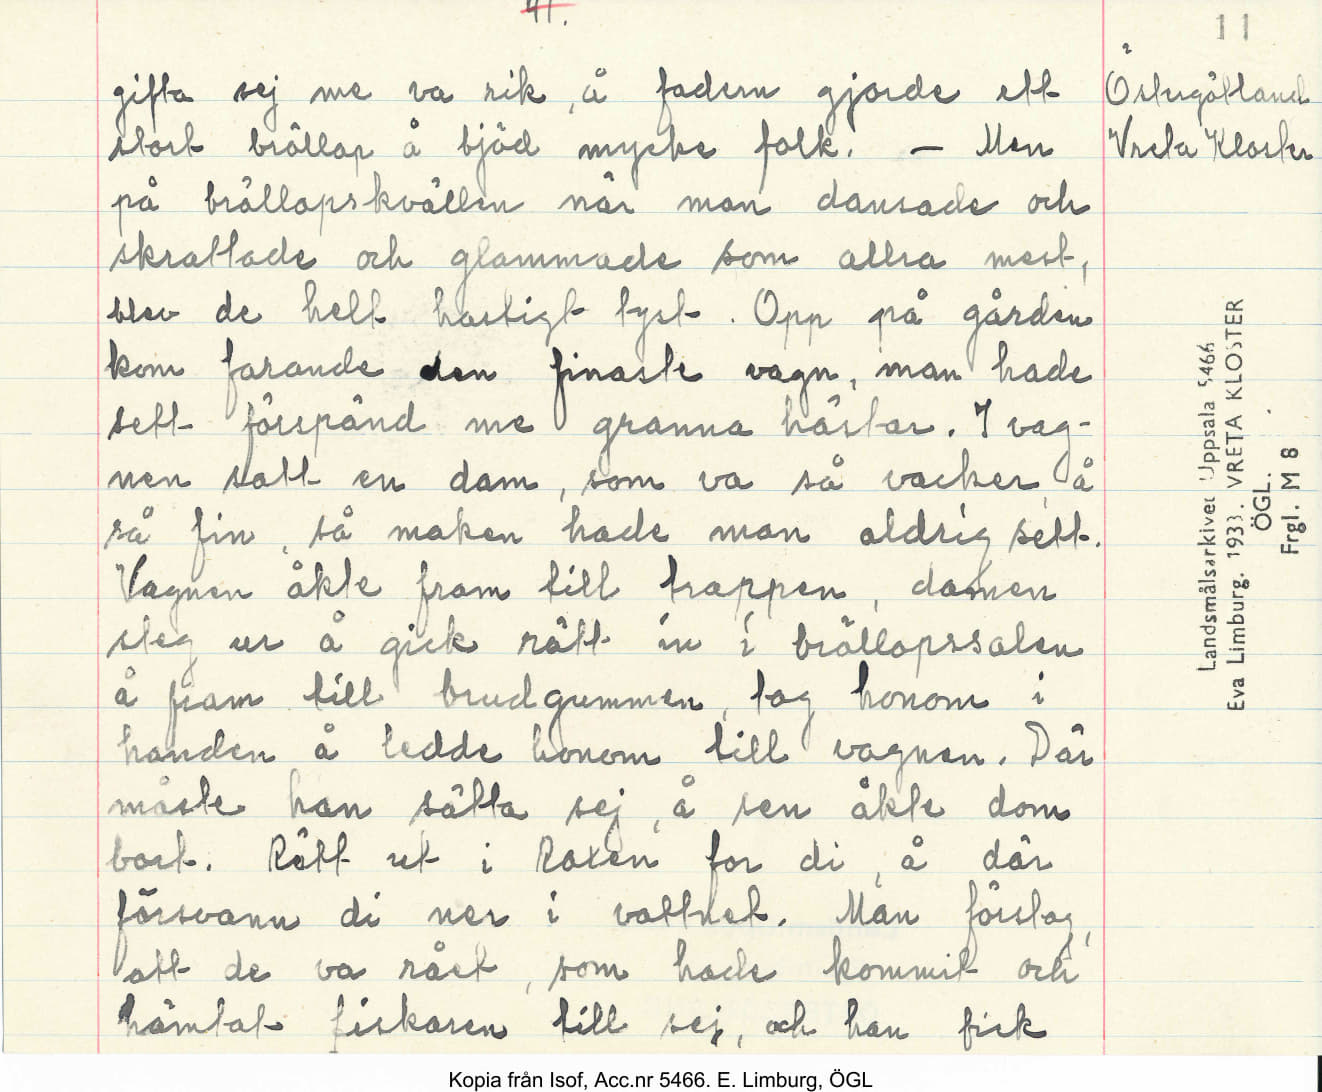 11
gifta sej me va rik, å fadern gjorde ett
stort bröllop å bjöd mycke folk. — Men
på bröllopskvällen när man dansade och
skrattade och glammade som allra mest,
blev de helt hastigt tyst. Opp på gården
kom farande den finaste vagn, man hade
sett förspänd me granna hästar. I vag-
nen satt en dam, som va så vacker, å
så fin, så maken hade man aldrig sett.
Vagnen åkte fram till trappen, damen
steg ur å gick rätt in i bröllopssalen
å fram till brudgummen, tog honom i
handen å ledde honom till vagnen. Där
måste han sätta sej, å sen åkte dom
bort. Rätt ut i Roxen for di, å där
försvann di ner i vattnet. Man förstog,
att de va rået, som hade kommit och
hämtat fiskaren till sej, och han fick
Östergötland
Vreta Kloster
Landsmålsarkivet Uppsala 5466
Eva Limburg. 1933. VRETA KLOSTER
ÖGL.
Frgl. M 8
Kopia från Isof, Acc.nr 5466. E. Limburg, ÖGL